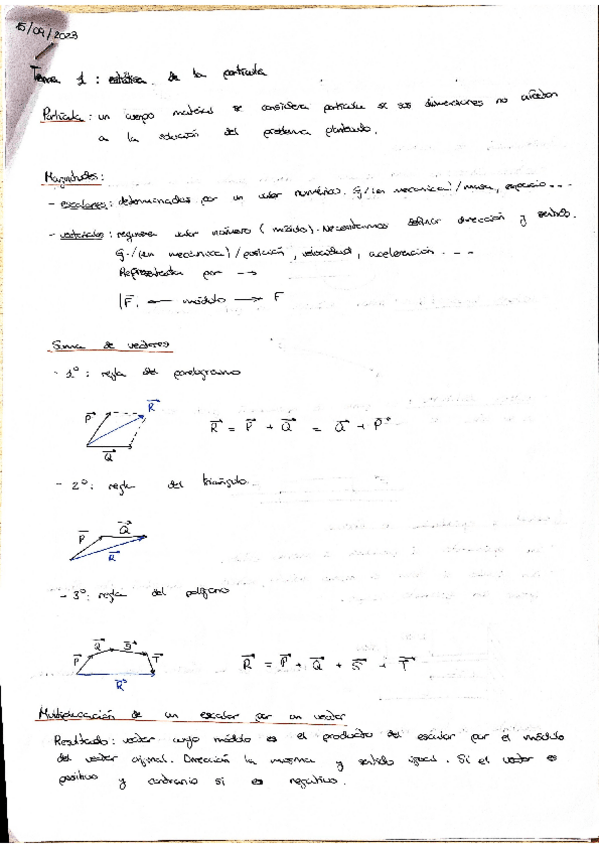 15/09/2023
Tema 1: estática de la partícula
Partícula: un cuerpo material se considera partícula si sus dimensiones no afectan
a la solución del problema planteado.
Magnitudes:
- escalares: determinadas por un valor numérico. Ej/(en mecanica)/masa, espacio...
- vectoriales: requiere valor número (módulo). Necesitamos definir dirección y sentido.
Ej./(en mecánica)/posición, velocidad, aceleración...
Representa por →
|F. ← módulo → F
Suma de vectores
- 1º: regla del
P R
Q
R = P + Q = Q + P
- 2º: regla del triángulo
P Q
R
- 3º: regla del polígono
P Q S T
R
R = P + Q + S + T
Multiplicación de un escalar por un vector
Resultado: vector cuyo módulo es el producto del escalar por el módulo
del vector original. Dirección la misma y sentido igual. Si el vector es
positivo y contrario si es negativo.